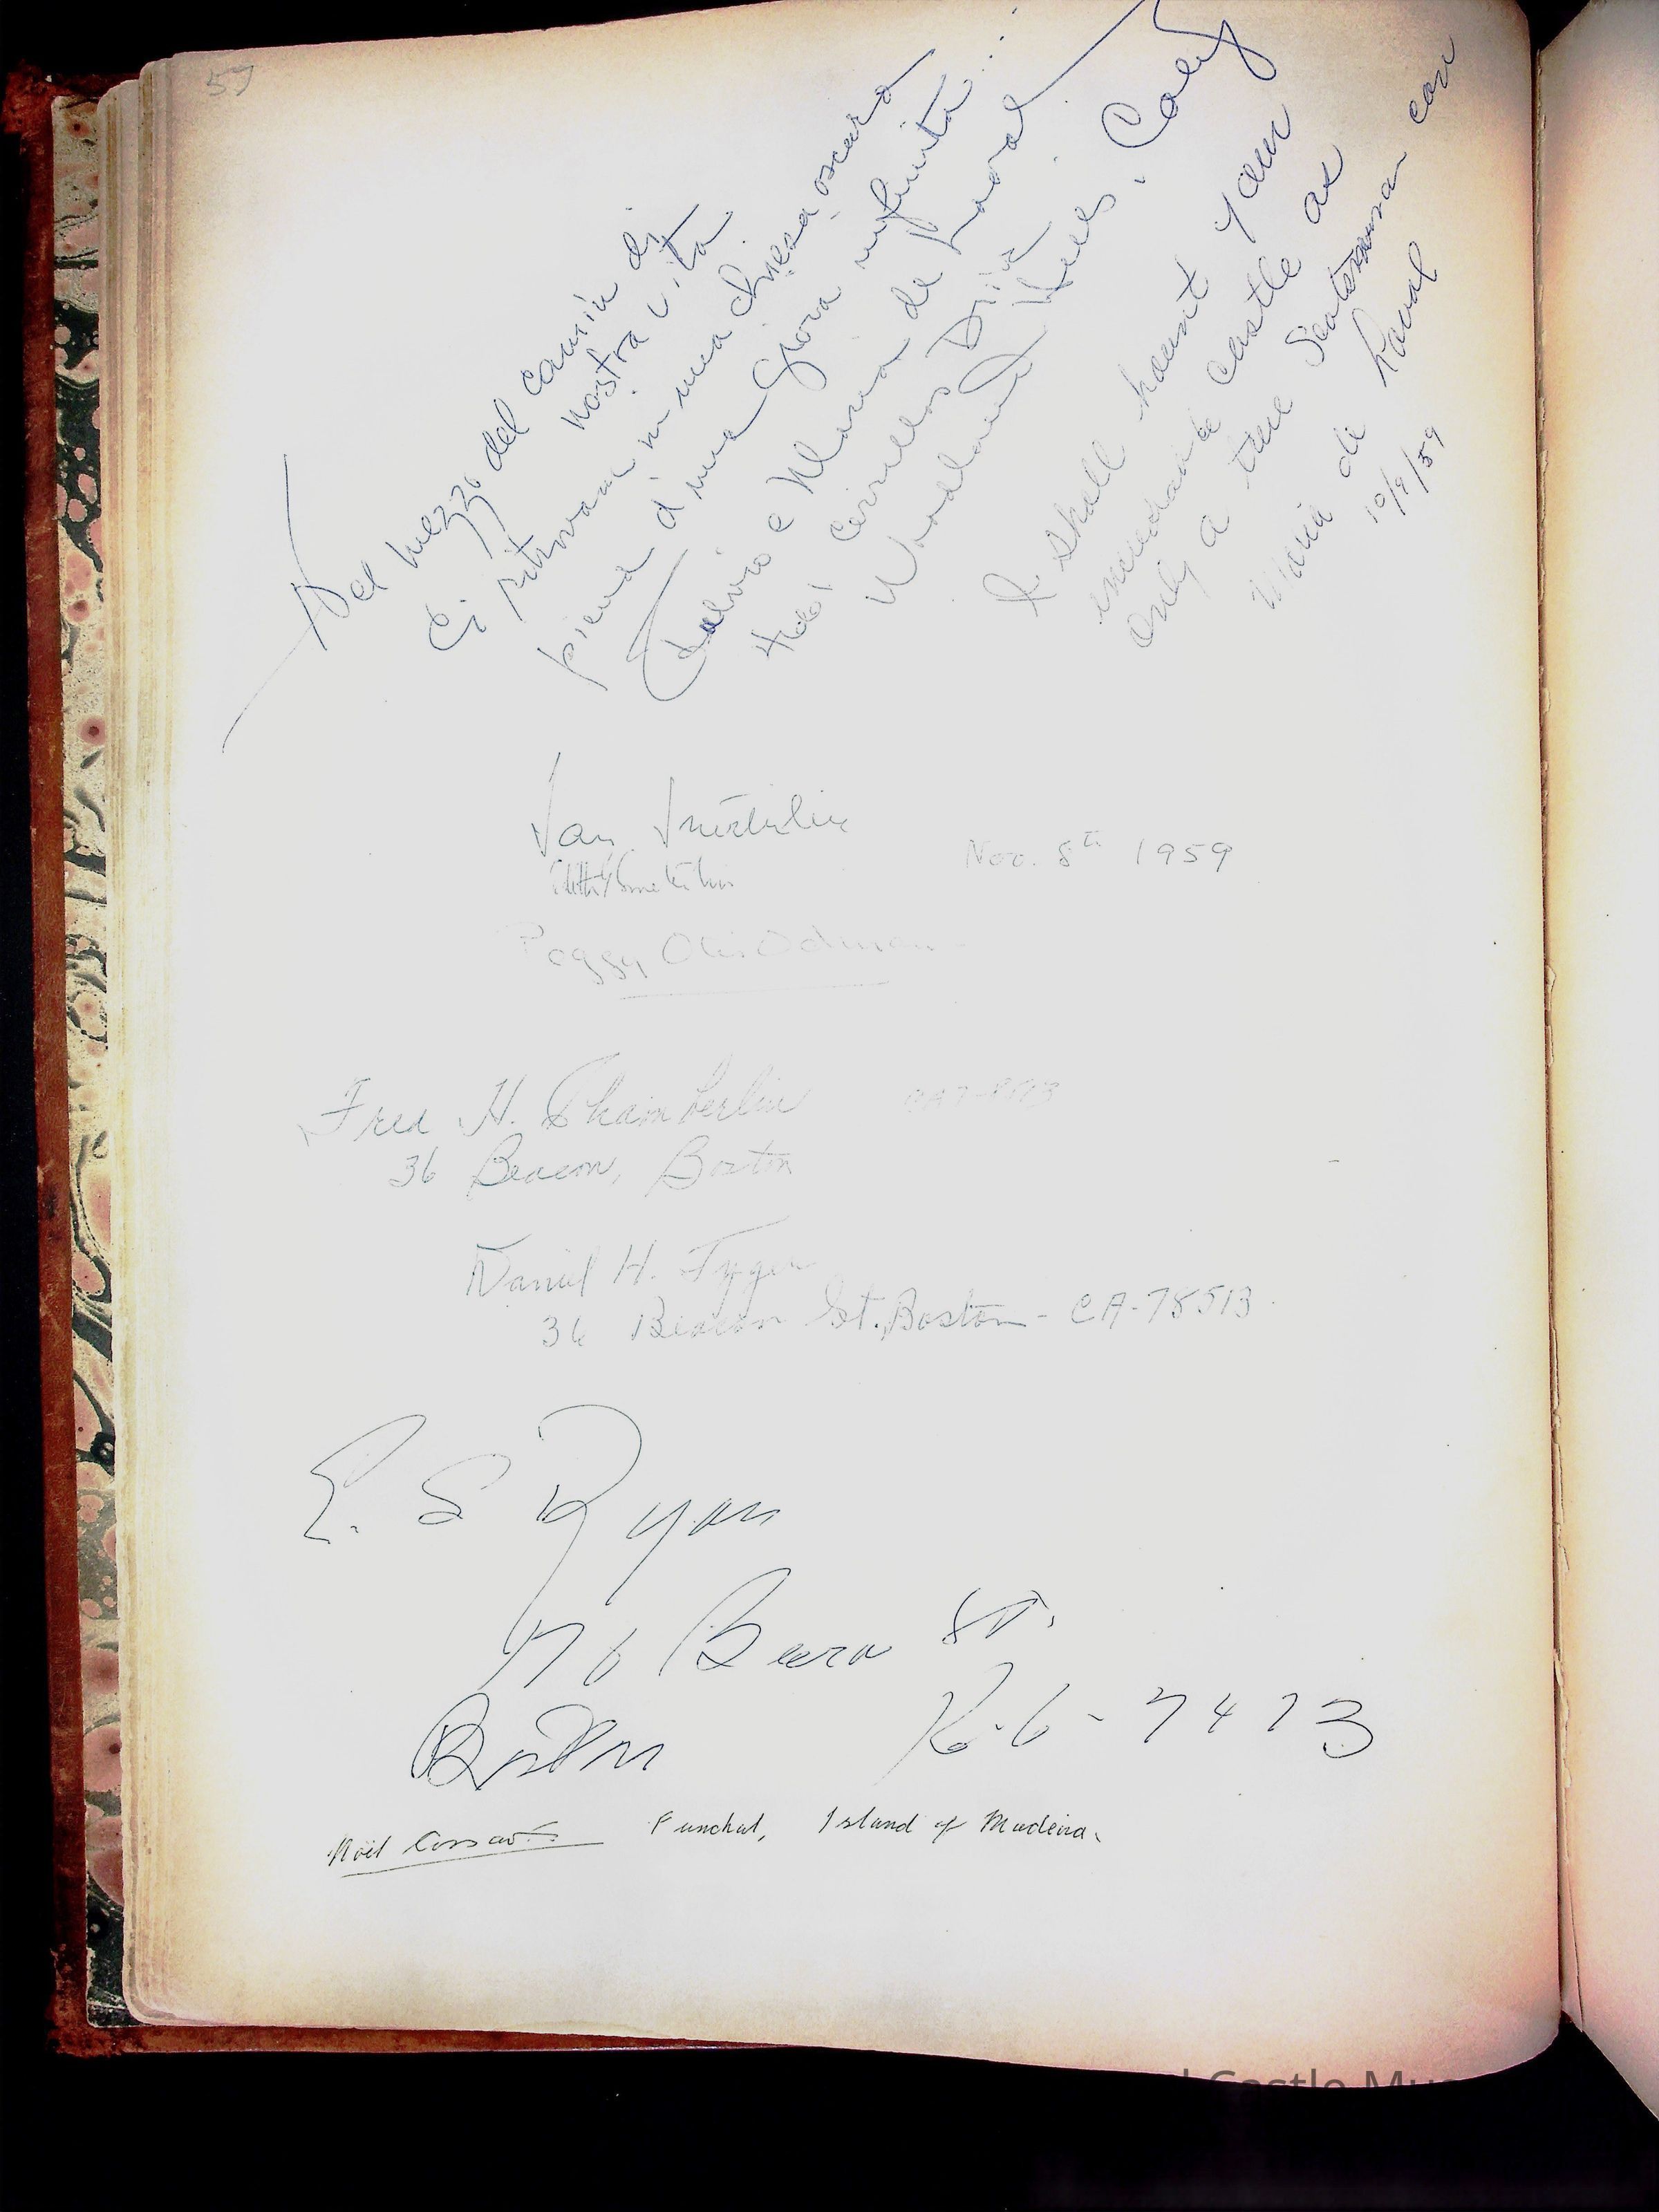 59
Nel mezzo del camin di
nostra vita
Ci ritrovam in una chiesa oscura
piena d'una gioia infinita...
e Maria de Laval
4661 Cerrillos Drive
Woodland Hills, Calif
I shall haunt your
castle as
Only a true Scotsman can
Maria de Laval
10/9/59
Jan Smeterlin
Smeterlin
Nov. 8th 1959
Peggy
Fred H. Chamberlin
36 Beacon, Boston
Daniel H. Tyger
36 Beacon St. Boston - CA-78513
E. S Ryan
76 St.
Boston
6-7473
Noël Cossart Funchal, Island of Madeira.
Castle Mus